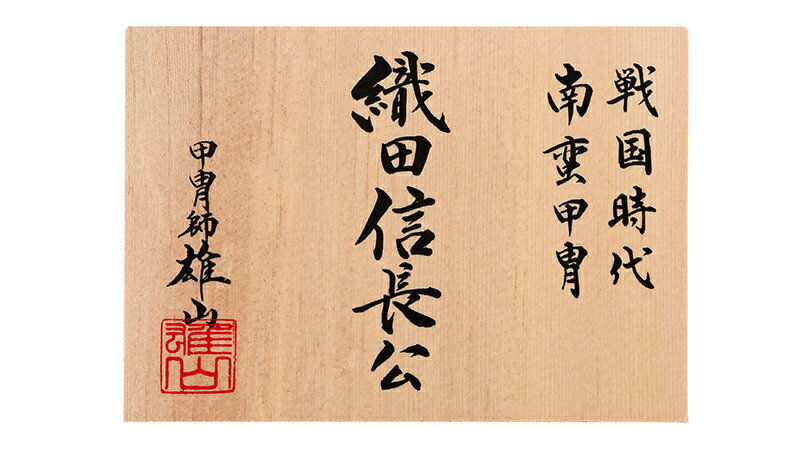 戦国時代
南蛮甲冑
織田信長公
甲冑師雄山
雄山